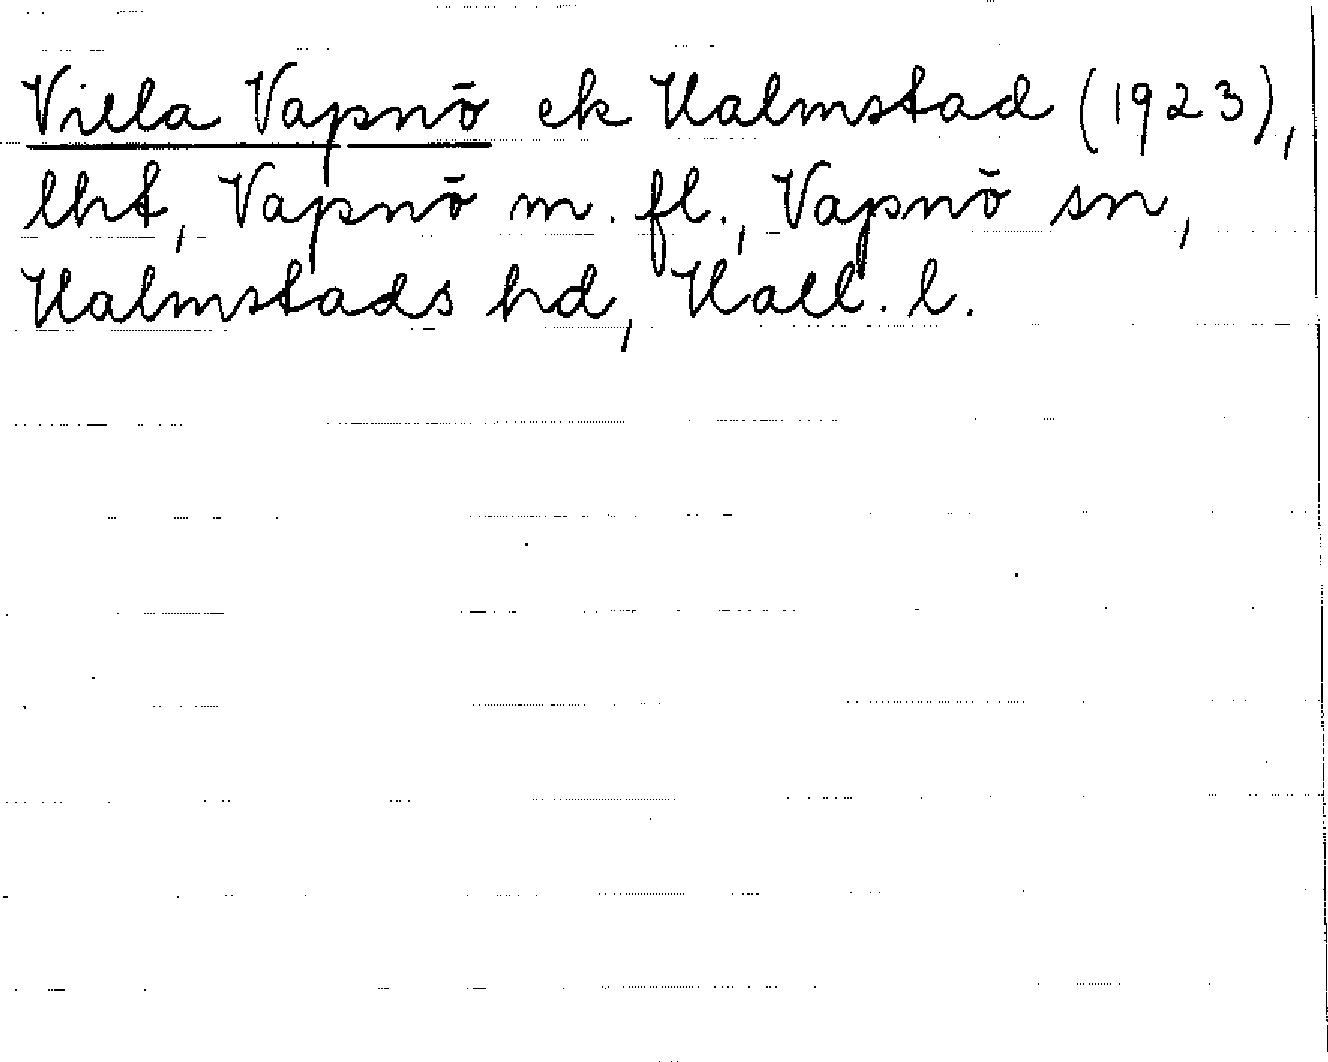 Villa Vapnö ek Halmstad (1923),
lht, Vapnö m. fl., Vapnö sn,
Halmstads hd, Hall. l.